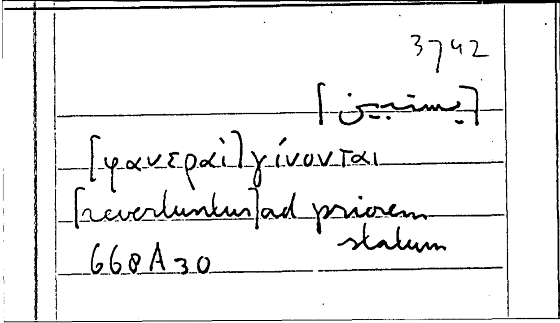 3742
[يستبين]
[φανεραὶ] γίνονται
[revertuntur] ad priorem
statum
668A30